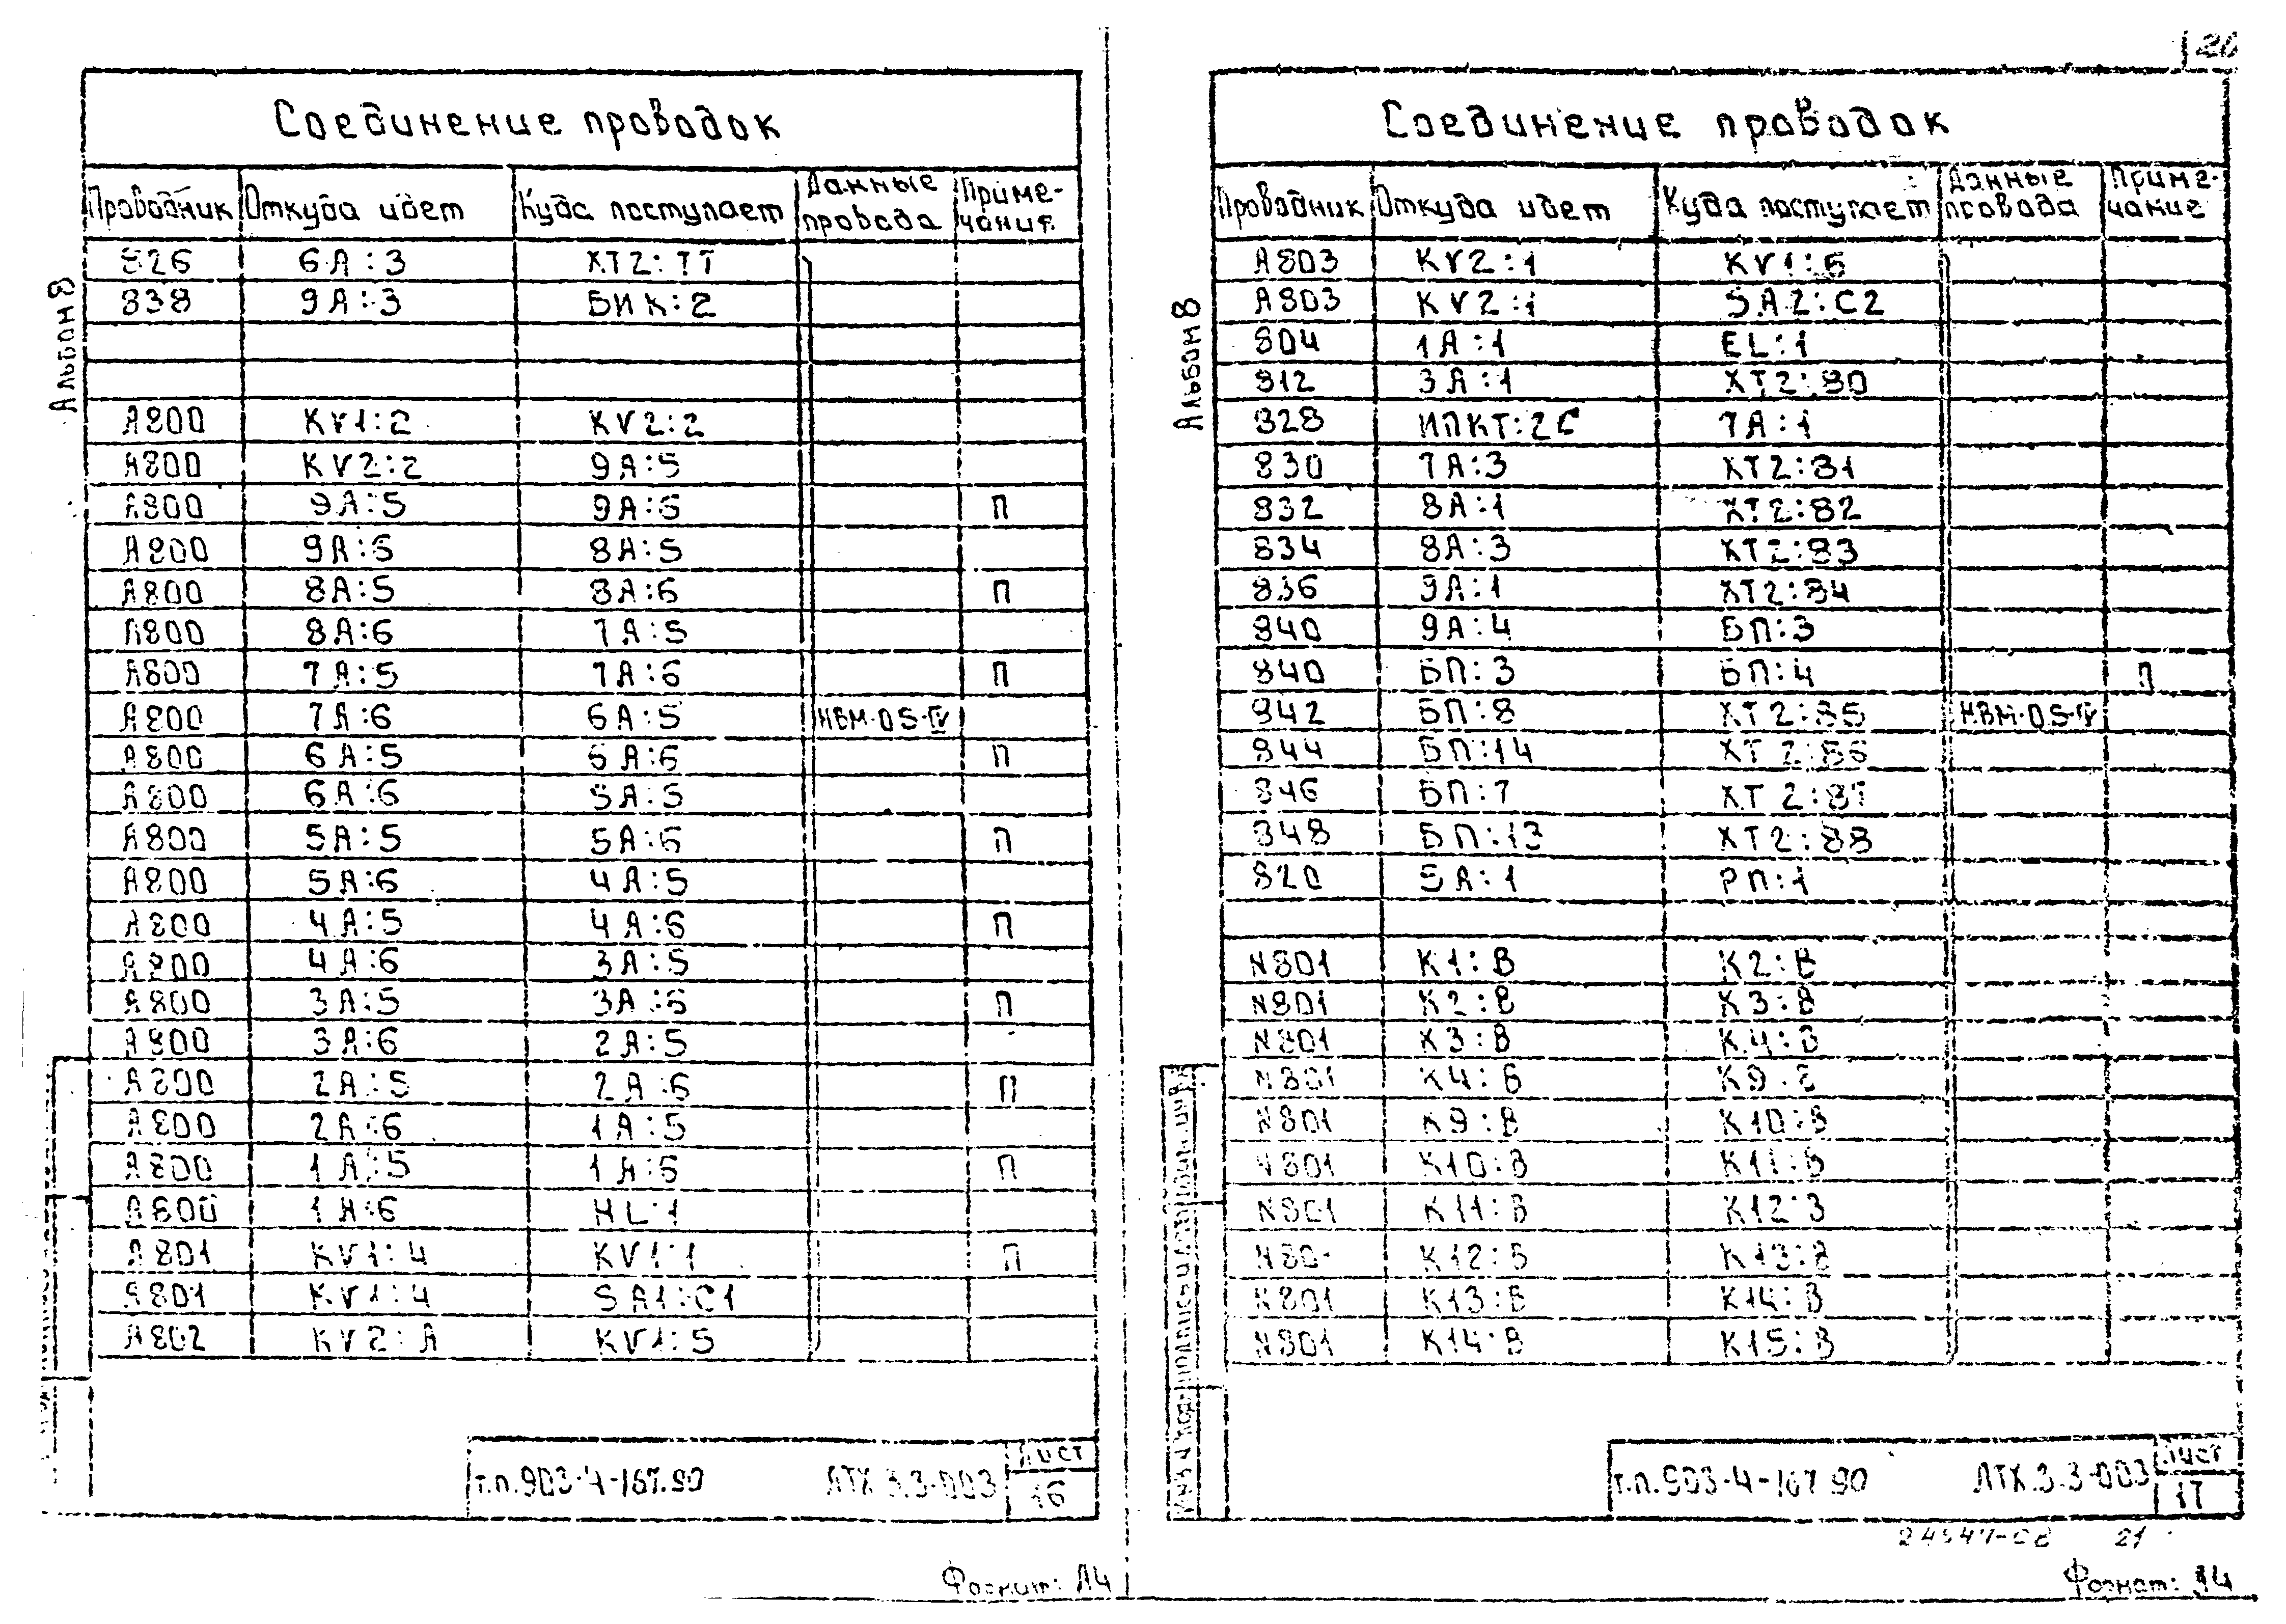 20
Соединение проводок
Проводник Откуда идет Куда поступает Данные провода Приме-чание
826 6А:3 ХТ2:77
838 9А:3 БИК:2
А800 KV1:2 KV2:2
А800 KV2:2 9А:5
А800 9А:5 9А:6 П
А800 9А:6 8А:5
А800 8А:5 8А:6 П
А800 8А:6 7А:5
А800 7А:5 7А:6 П
А800 7А:6 6А:5 НВМ-0.5-IV
А800 6А:5 6А:6 П
А800 6А:6 5А:5
А800 5А:5 5А:6 П
А800 5А:6 4А:5
А800 4А:5 4А:6 П
А800 4А:6 3А:5
А800 3А:5 3А:6 П
А800 3А:6 2А:5
А800 2А:5 2А:6 П
А800 2А:6 1А:5
А800 1А:5 1А:6 П
А800 1А:6 HL:1
А801 KV1:4 KV1:1 П
А801 KV1:4 SA1:C1
А802 KV2:А KV1:5
Альбом 8
т.п.903-4-167.90 АТХ.3.3-003 Лист 16
Формат: А4
Соединение проводок
Проводник Откуда идет Куда поступает Данные провода Приме-чание
А803 KV2:1 KV1:6
А803 KV2:1 SA2:C2
804 1А:1 EL:1
812 3А:1 ХТ2:80
828 ИПКТ:2С 7А:1
830 7А:3 ХТ2:81
832 8А:1 ХТ2:82
834 8А:3 ХТ2:83
836 9А:1 ХТ2:84
840 9А:4 БП:3
840 БП:3 БП:4 П
842 БП:8 ХТ2:85 НВМ-0.5-IV
844 БП:14 ХТ2:86
846 БП:7 ХТ2:87
848 БП:13 ХТ2:88
820 5А:1 РП:1
N801 К1:В К2:В
N801 К2:В К3:В
N801 К3:В К4:В
N801 К4:В К9:В
N801 К9:В К10:В
N801 К10:В К11:В
N801 К11:В К12:В
N801 К12:В К13:В
N801 К13:В К14:В
N801 К14:В К15:В
Альбом 8
т.п.903-4-167.90 АТХ.3.3-003 Лист 17
21
Формат: А4